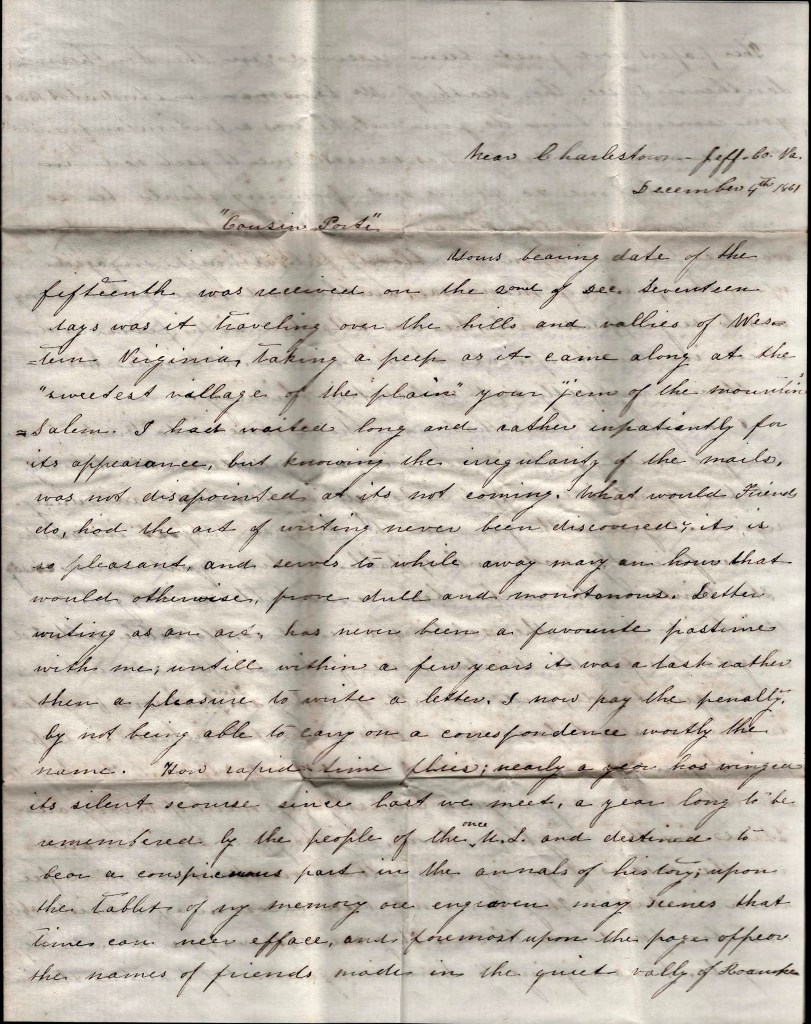 Near Charlestown - Jeff. Co. Va.
December 9th 1861
"Cousin Porte"
Yours bearing date of the
fifteenth was received on the 2ond of Dec. Seventeen
days was it traveling over the hills and vallies of Wes-
-tern Virginia, taking a peep as it came along at the
"sweetest village of the plain" your "jem of the mountin"
= Salem. I had waited long and rather inpatiently for
its appearance, but knowing the irregularity of the mails,
was not disapointed at its not coming. What would Friends
do, had the art of writing never been discovered; it is
so pleasant, and serves to while away many an hour that
would otherwise, prove dull and monotonous. Letter
writing as an art, has never been a favourite pastime
with me; untill within a few years it was a task rather
then a pleasure to write a letter. I now pay the penalty,
by not being able to carry on a correspondence worthy the
name. How rapid time flies; nearly a year has winged
its silent scourse since last we meet, a year long to be
remembered by the people of the once U.S. and destined to
bear a conspicuous part in the annals of history; upon
the tablet of my memory are engraven many scenes that
times can neer efface, and foremost upon the page appear
the names of friends made in the quiet vally of Roanoke